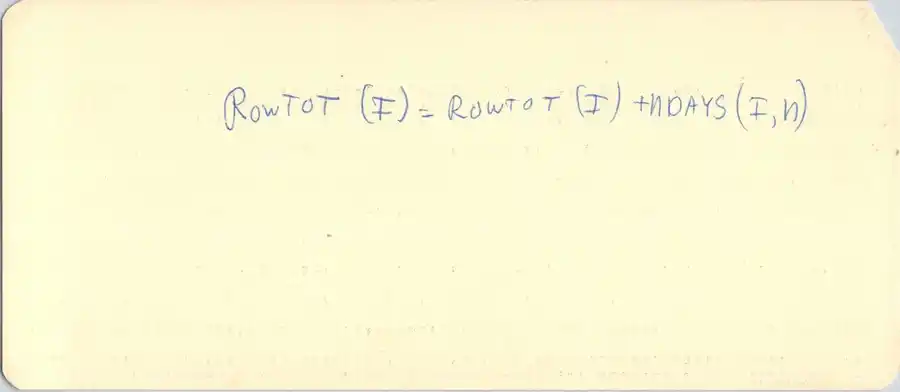 ROWTOT (I) = ROWTOT (I) + NDAYS (I, N)